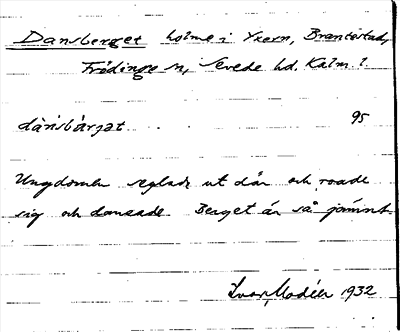 Dansberget holme i Yxern, Brantestad,
Frödinge sn, Sevede hd. Kalm l.
dánsbärjat 95
Ungdomen seglade ut där och roade
sig och dansade. Berget är så jämnt.
Ivar Modéer 1932